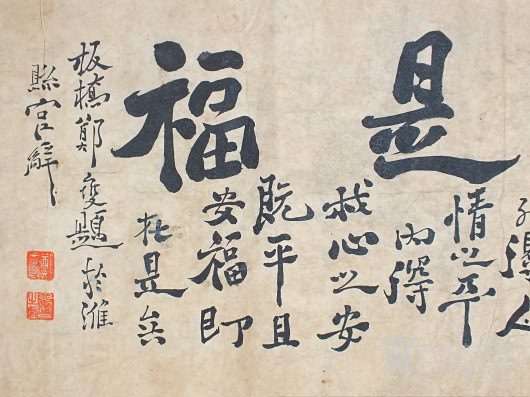 是福
得人
情之平
內得
我心之安
既平且
安福即
在是矣
板橋鄭燮題於濰
縣官廨